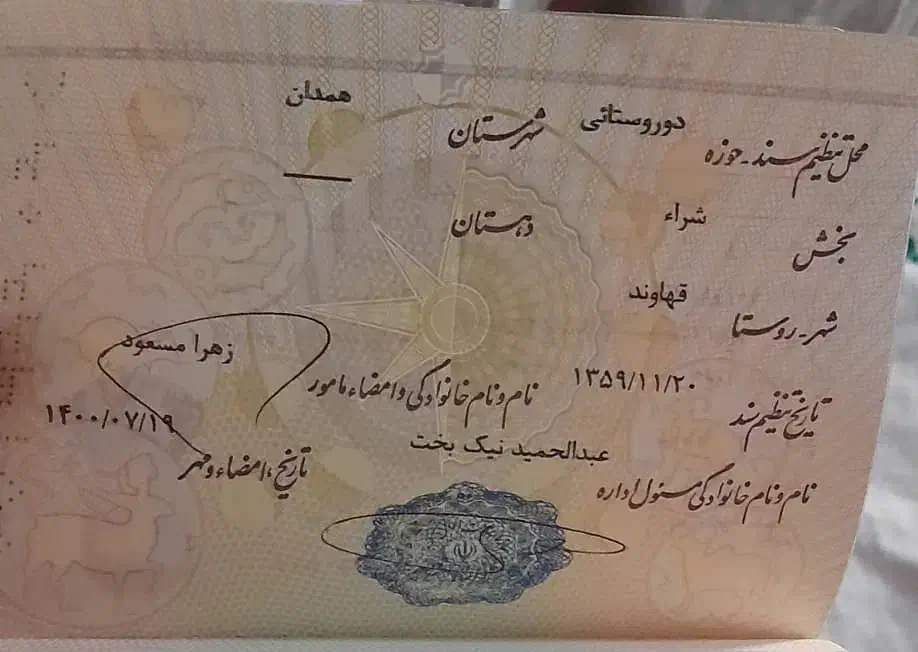 محل تنظیم سند - حوزه دوروستائی شهرستان همدان
بخش شراء دهستان ـــ
شهر - روستا قهاوند
تاریخ تنظیم سند ۱۳۵۹/۱۱/۲۰ نام و نام خانوادگی و امضاء مامور زهرا مسعود
نام و نام خانوادگی مسئول اداره عبدالحمید نیک بخت تاریخ، امضاء و مهر ۱۴۰۰/۰۷/۱۹